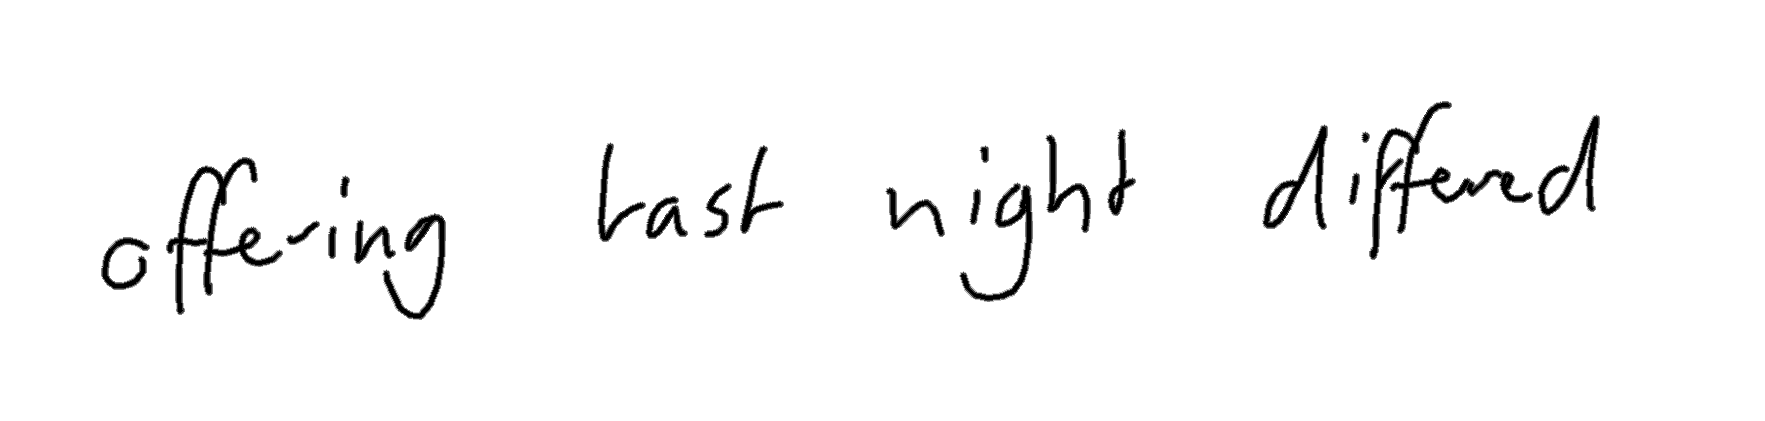 offering last night differed